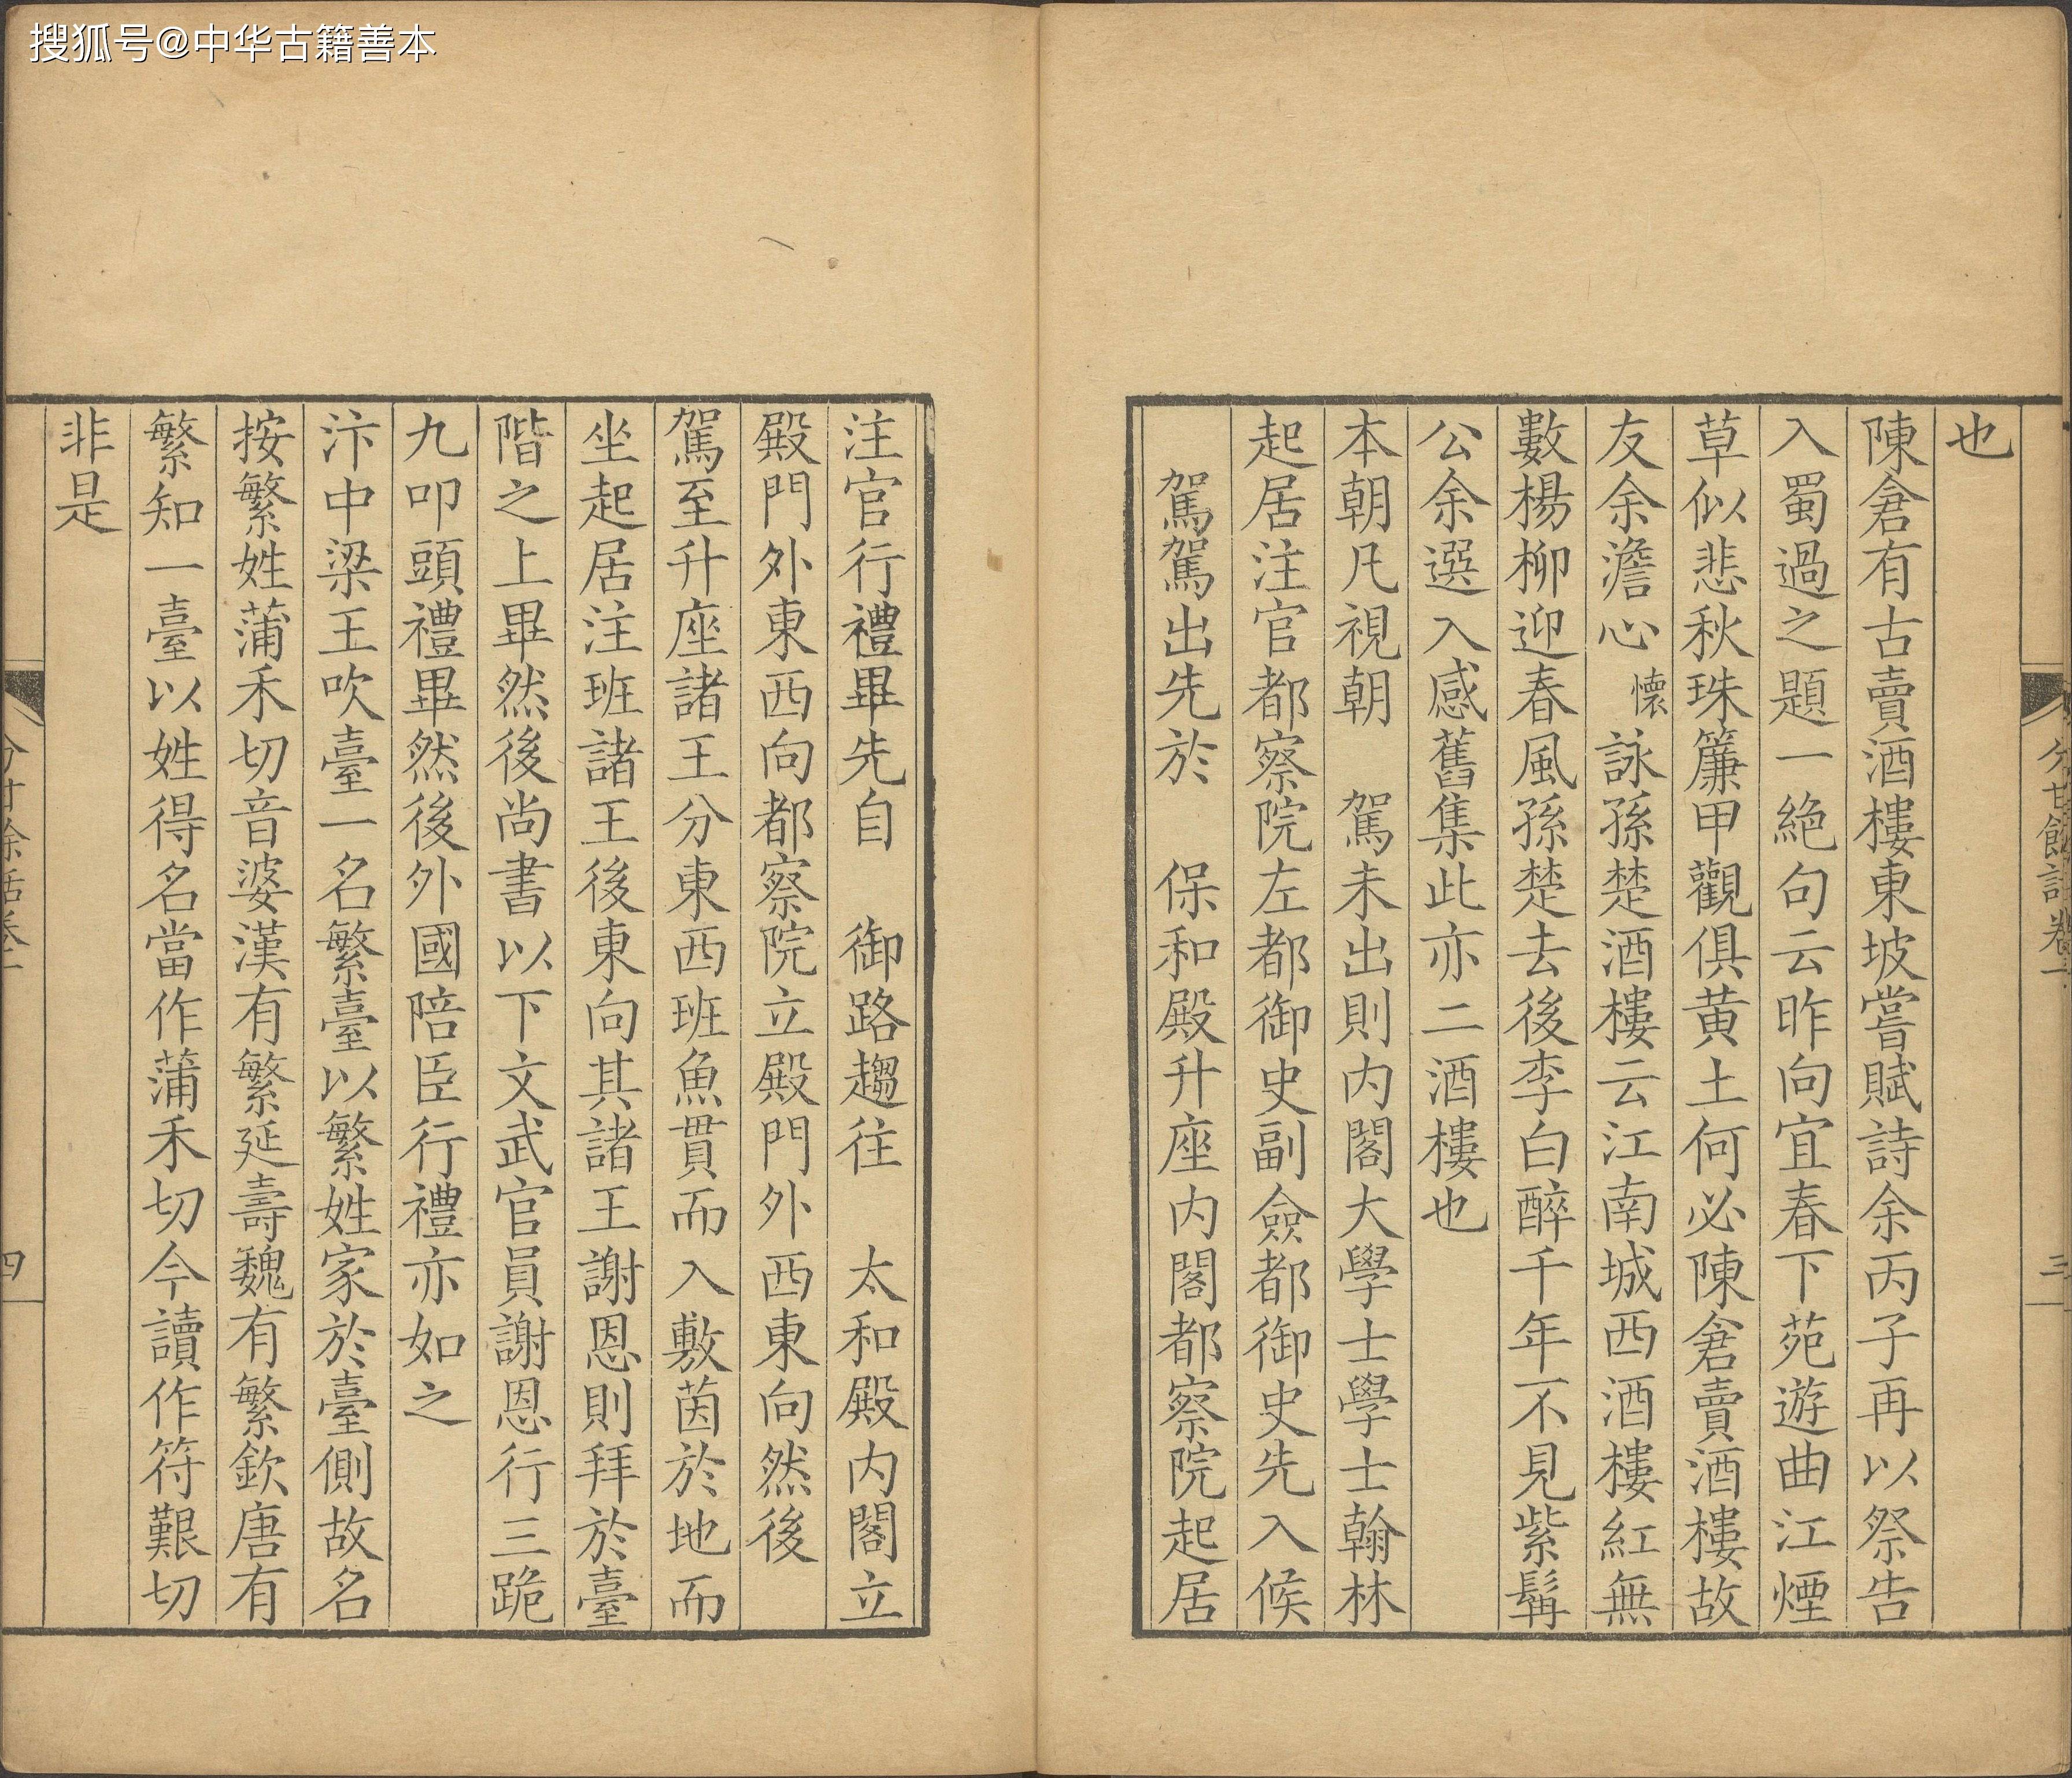 搜狐号@中华古籍善本
也
陳倉有古賣酒樓東坡嘗賦詩余丙子再以祭告
入蜀過之題一絶句云昨向宜春下苑遊曲江煙
草似悲秋珠簾甲觀俱黄土何必陳倉賣酒樓故
友余澹心懷詠孫楚酒樓云江南城西酒樓紅無
數楊柳迎春風孫楚去後李白醉千年不見紫髯
公余選入感舊集此亦二酒樓也
本朝凡視朝 駕未出則内閣大學士學士翰林
起居注官都察院左都御史副僉都御史先入候
駕駕出先於 保和殿升座内閣都察院起居
注官行禮畢先自 御路趨往 太和殿内閣立
殿門外東西向都察院立殿門外西東向然後
駕至升座諸王分東西班魚貫而入敷茵於地而
坐起居注班諸王後東向其諸王謝恩則拜於臺
階之上畢然後尚書以下文武官員謝恩行三跪
九叩頭禮畢然後外國陪臣行禮亦如之
汴中梁王吹臺一名繁臺以繁姓家於臺側故名
按繁姓蒲禾切音婆漢有繁延壽魏有繁欽唐有
繁知一臺以姓得名當作蒲禾切今讀作符艱切
非是
四